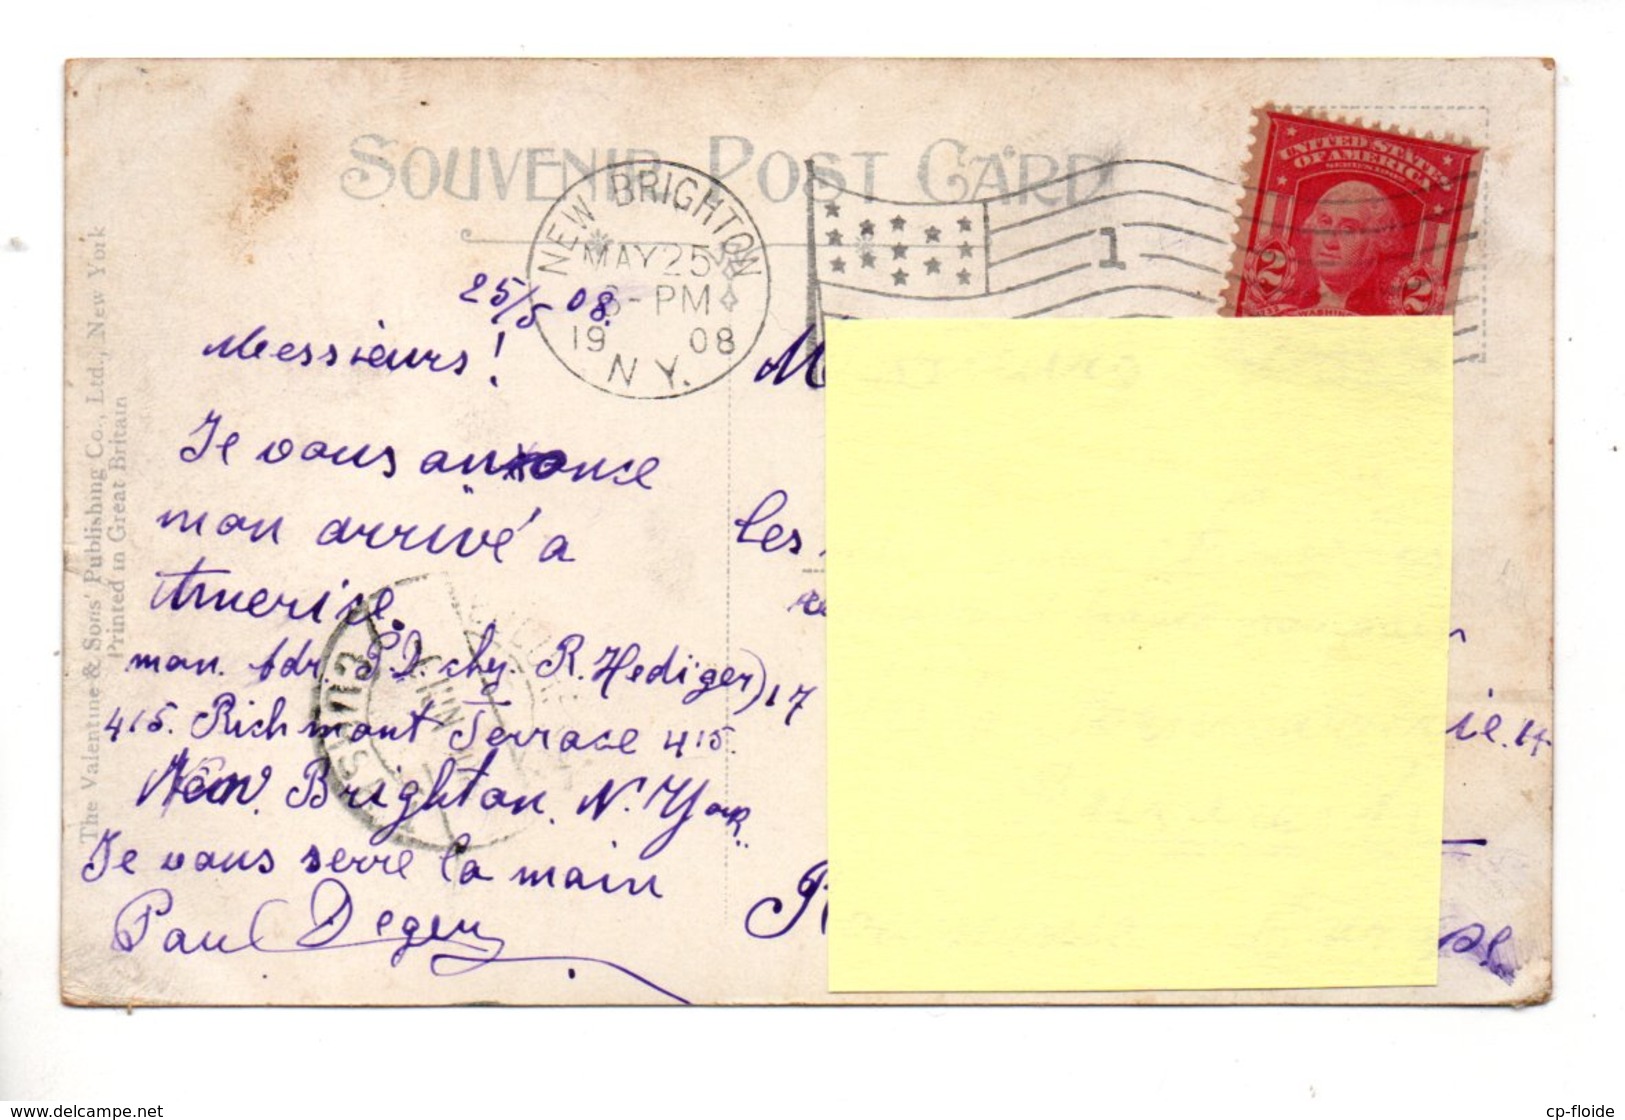 SOUVENIR POST CARD
NEW BRIGHTON
MAY 25
6-PM
19 08
N.Y.
1
UNITED STATES
OF AMERICA
SERIES 1902
2 2
The Valentine & Sons' Publishing Co., Ltd., New York
Printed in Great Britain
25/5 08.
Messieurs!
Je vous anonce
mon arrivé a
Amerike.
mon. Adr. P.D. chez. R. Hediger) 17
415. Richmont Terrace 415.
New. Brighton. N. York.
Je vous serre la main
Paul Degen
M
les
ie. 14